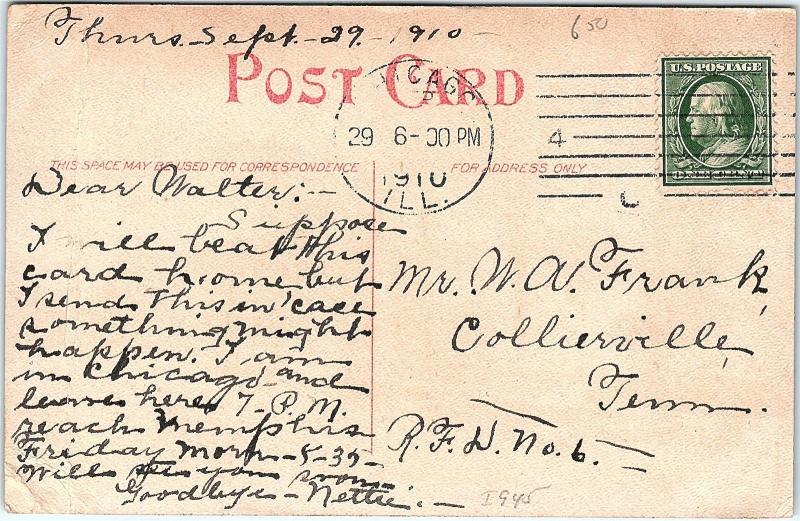 Thurs. Sept. 29. 1910
6 50
POST CARD
CHICAGO
29 6-00 PM
1910
ILL.
4
C
U.S. POSTAGE
ONE CENT
THIS SPACE MAY BE USED FOR CORRESPONDENCE
FOR ADDRESS ONLY
Dear Walter:-
Suppose
I will beat this
card home but
I send this in case
something might
happen. I am
in Chicago and
leave here 7-P.M.
reach Memphis
Friday morn-8-35-
Will see you soon-
Goodbye-Nettie.-
Mr. W. A. Frank,
Collierville,
Tenn.
R.F.D. No. 6.
1945